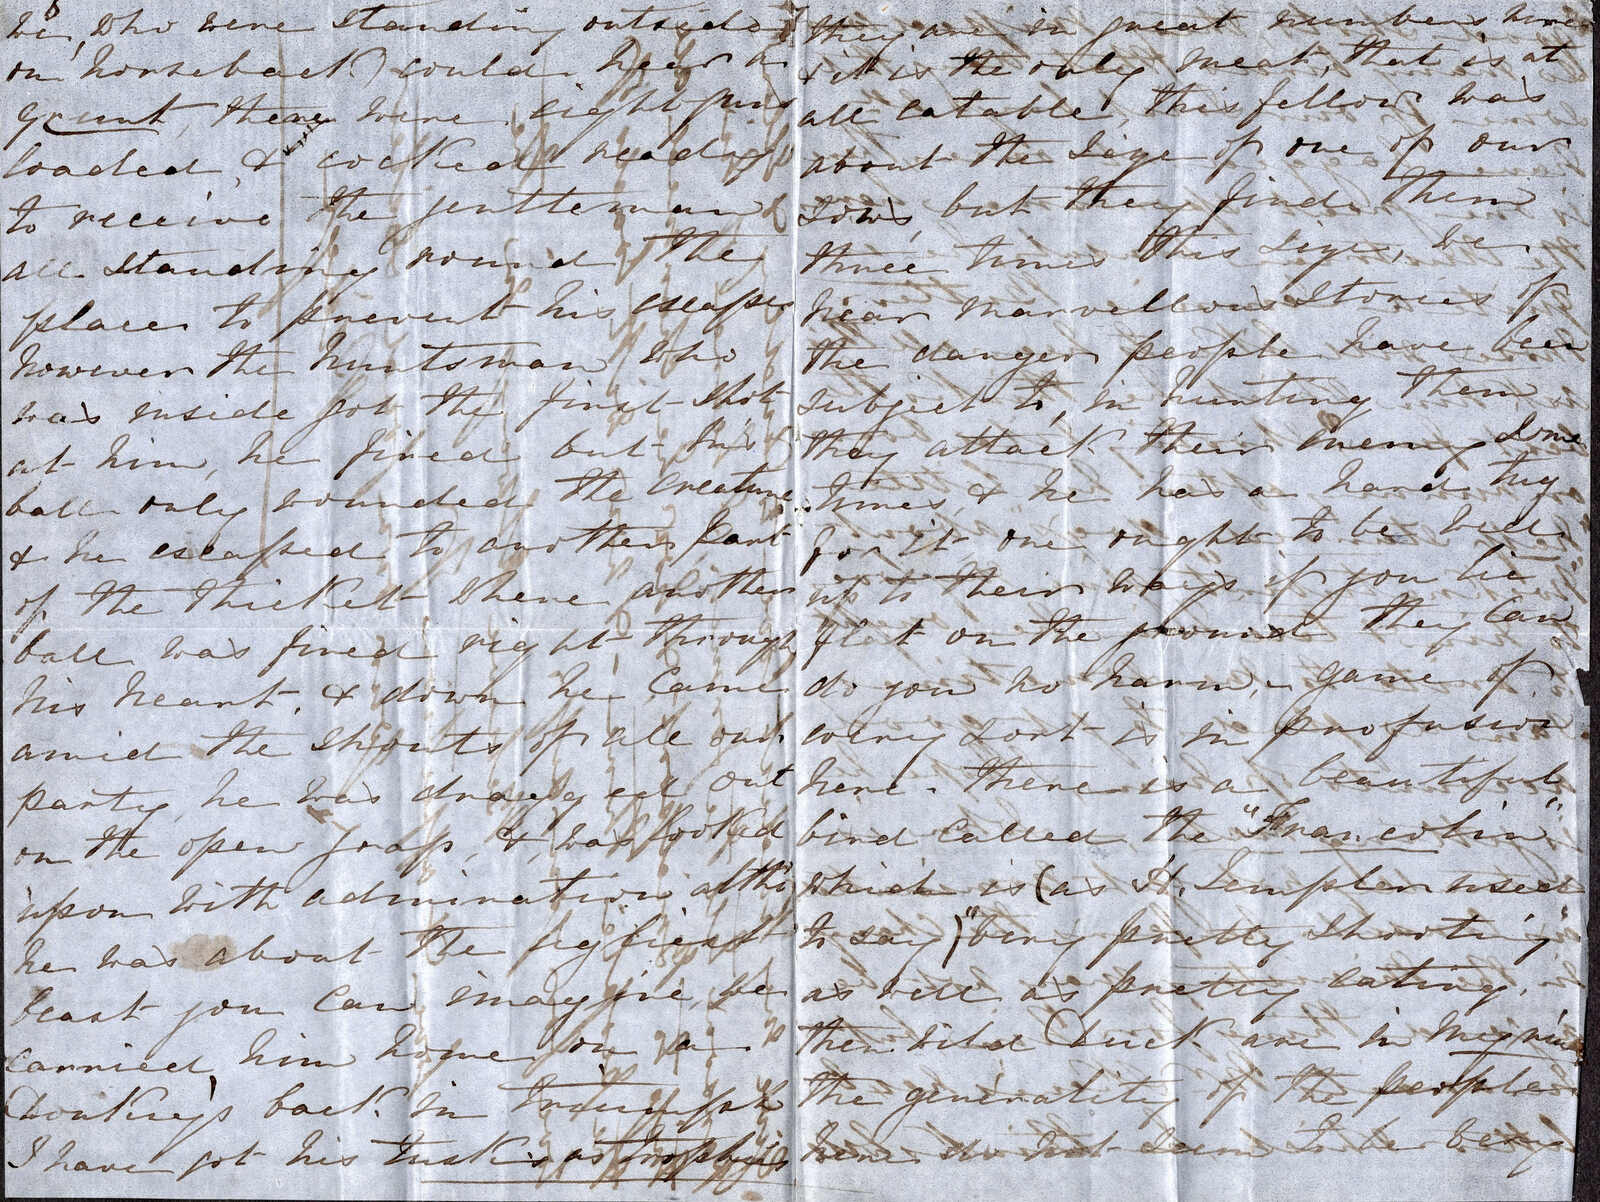 we, who were standing outside
on horseback) could hear a
grunt, there were eight guns
loaded, & cocked ready
to receive the gentleman
all standing round the
place to prevent his escape
however the huntsman who
was inside got the first shot
at him, he fired but his
ball only wounded the creature
& he escaped to another part
of the thicket where another
ball was fired right through
his heart, & down he came
amid the shouts of all our
party, he was dragged out
on the open grass, & was looked
upon with admiration altho'
he was about the ugliest
beast you can imagine, we
carried him home on a
Donkey's back in triumph
I have got his tusks as trophies
they are in great numbers here
& it is the only meat, that is at
all eatable, this fellow was
about the size of one of our
sows, but they find them
three times this size, we
hear marvellous stories of
the danger people have been
subject to, in hunting them
they attack their enemy some
times, & he has a hard tug
for it, one ought to be wed
up to their ways if you lie
flat on the ground they can
do you no harm, game of
every sort is in profusion
here. there is a beautiful
bird called the "Francolin"
which is (as H. Templer used
to say) "very pretty shooting"
as well as pretty eating,
then wild Duck are in Myriads
the generality of the people
here do not seem to be very